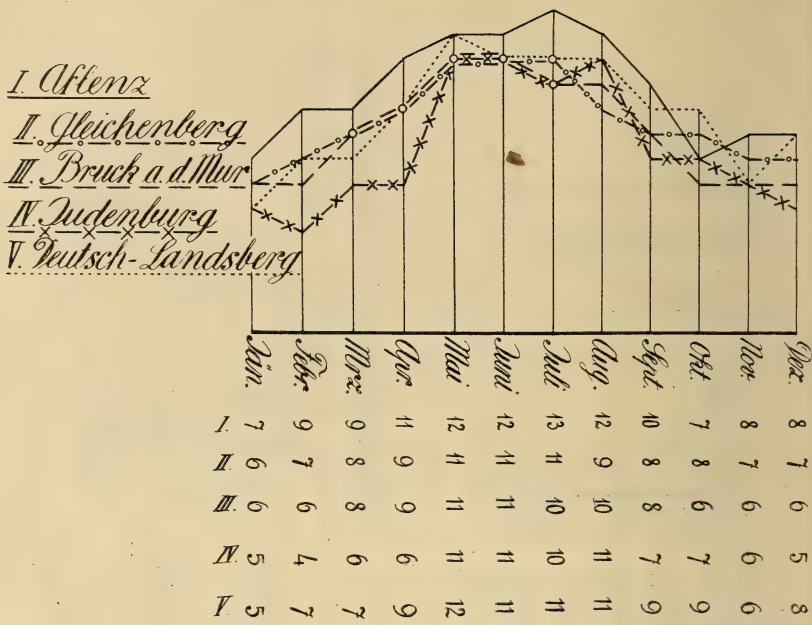 I. Aflenz
II. Gleichenberg
III. Bruck a. d. Mur
IV. Judenburg
V. Deutsch-Landsberg
Jän. Febr. Mrz. Apr. Mai Juni Juli Aug. Sept. Okt. Nov. Dez.
I. 7 9 9 11 12 12 13 12 10 7 8 8
II. 6 7 8 9 11 11 11 9 8 8 7 7
III. 6 6 8 9 11 11 10 10 8 6 6 6
IV. 5 4 6 6 11 11 10 11 7 7 6 5
V. 5 7 7 9 12 11 11 11 9 9 6 8